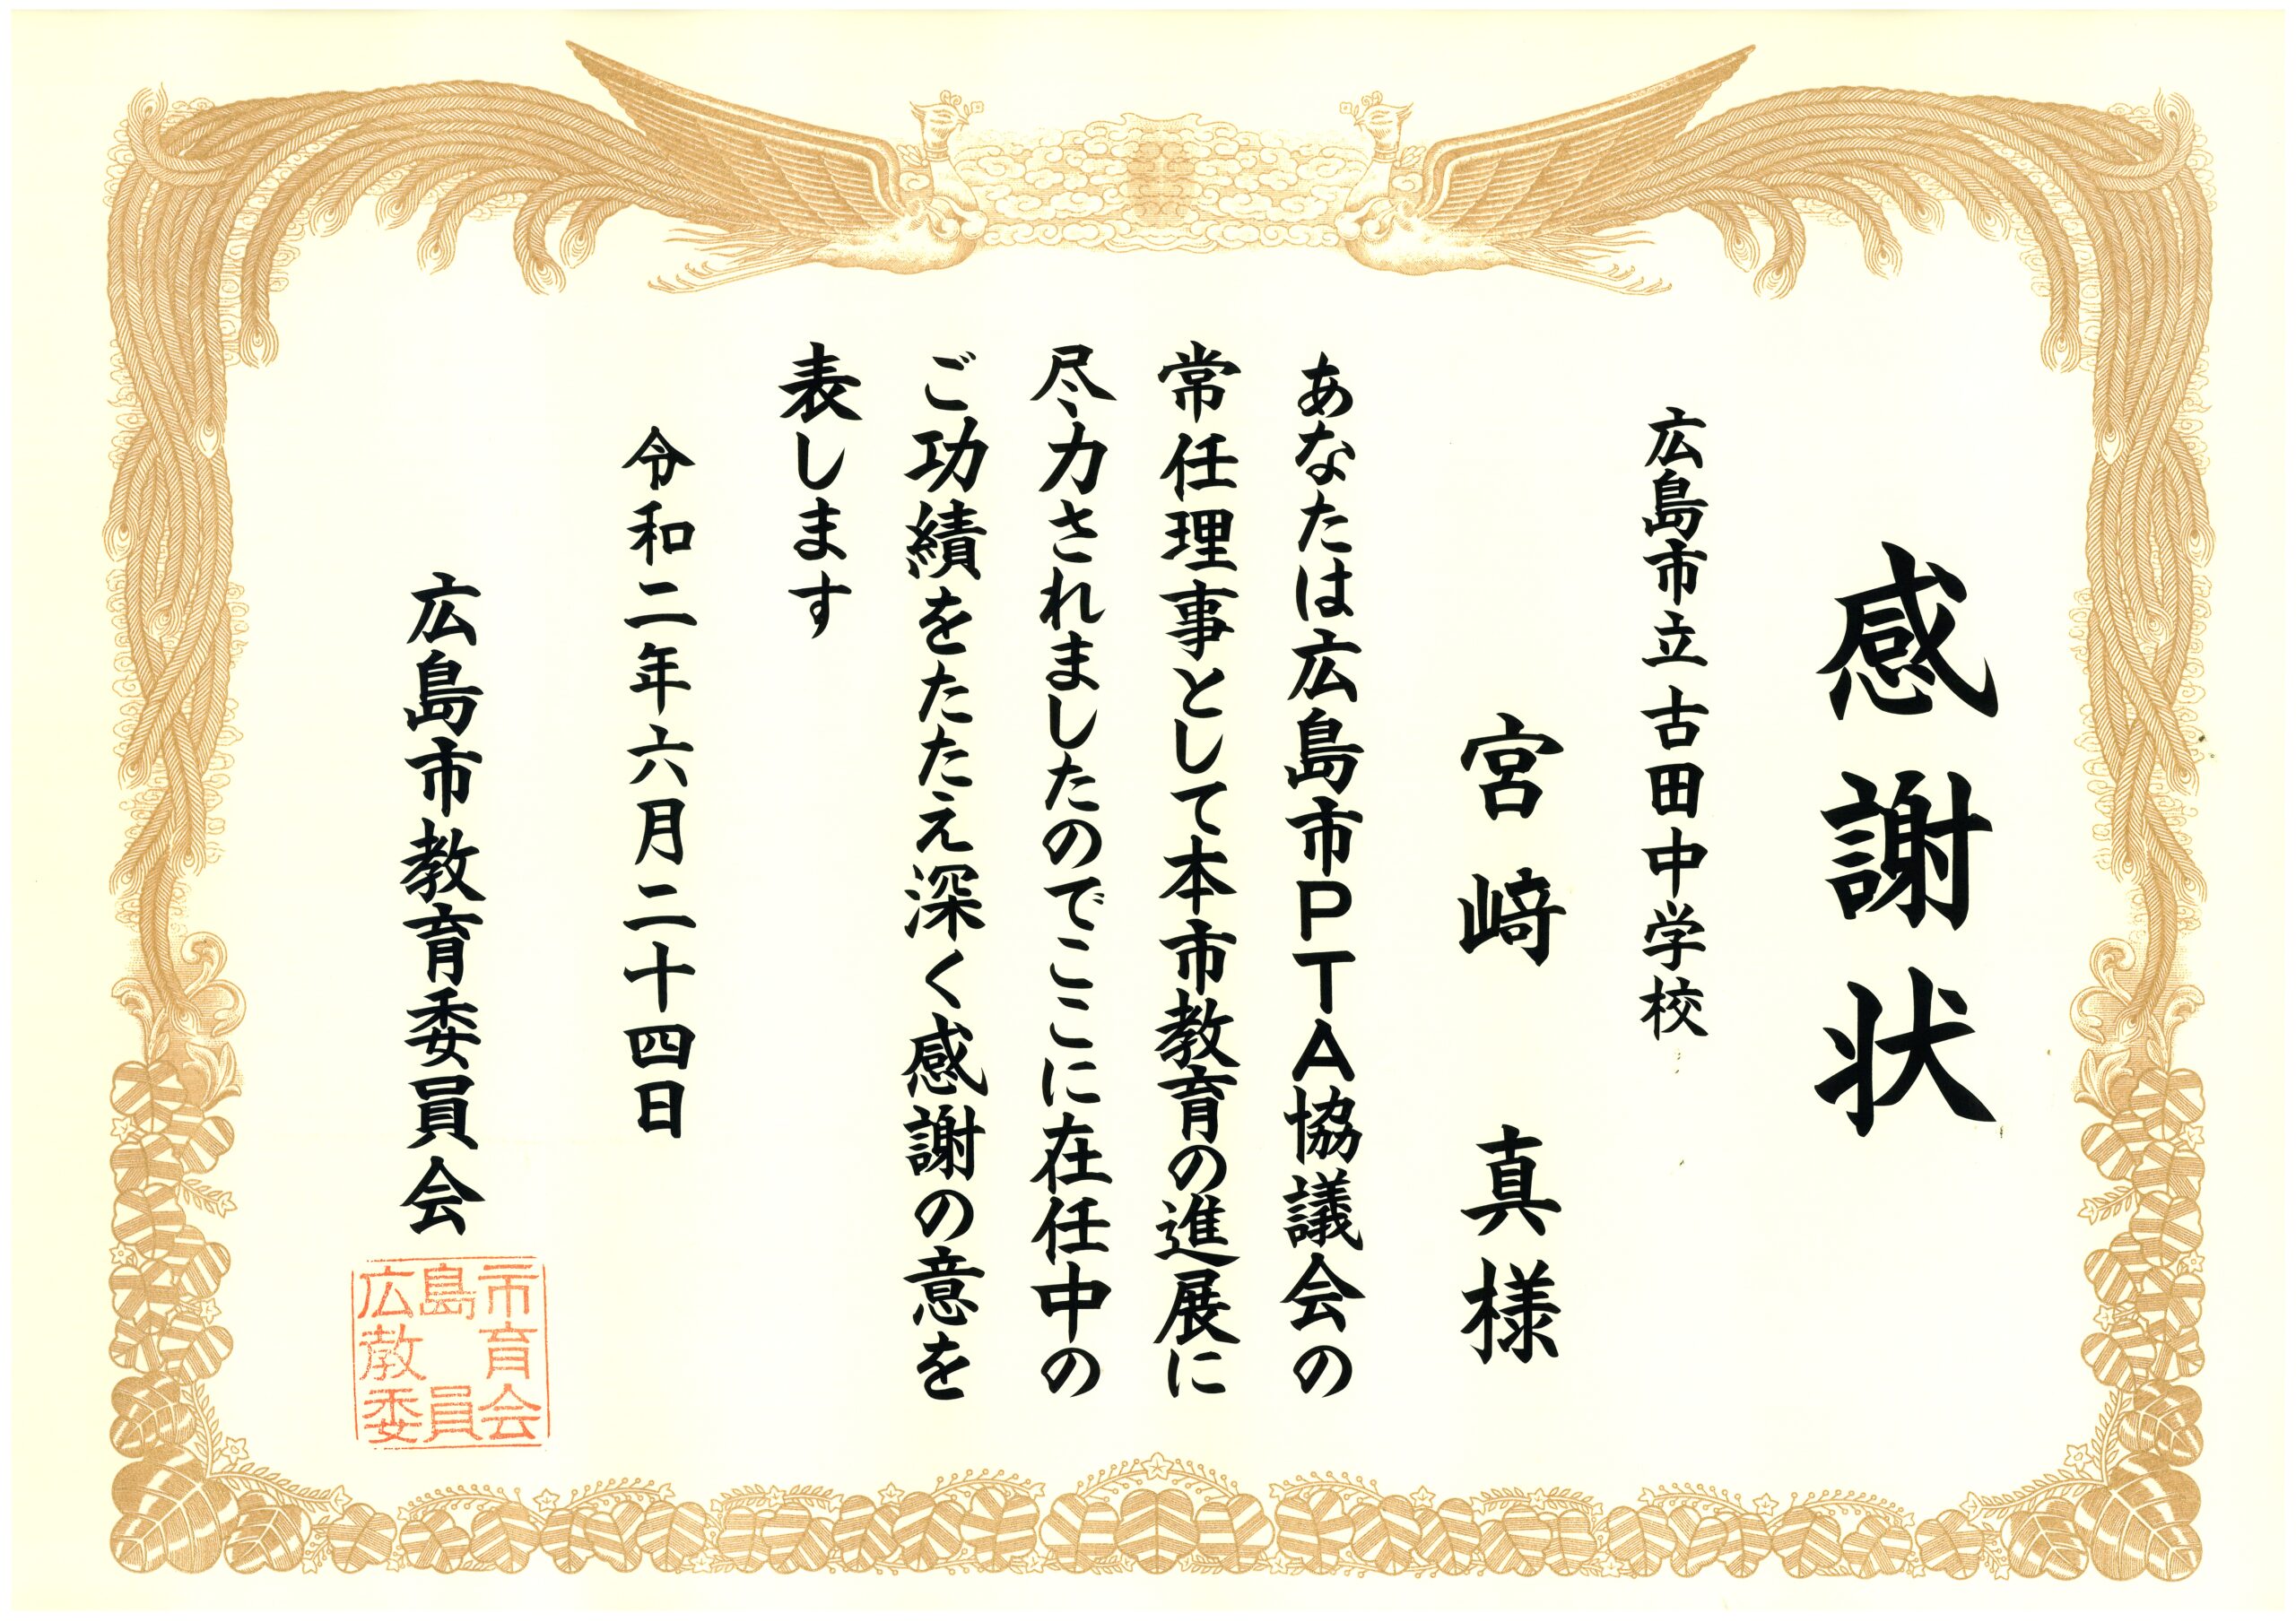 感謝状
広島市立古田中学校
宮﨑 真様
あなたは広島市PTA協議会の
常任理事として本市教育の進展に
尽力されましたのでここに在任中の
ご功績をたたえ深く感謝の意を
表します
令和二年六月二十四日
広島市教育委員会
広島市
教育
委員会